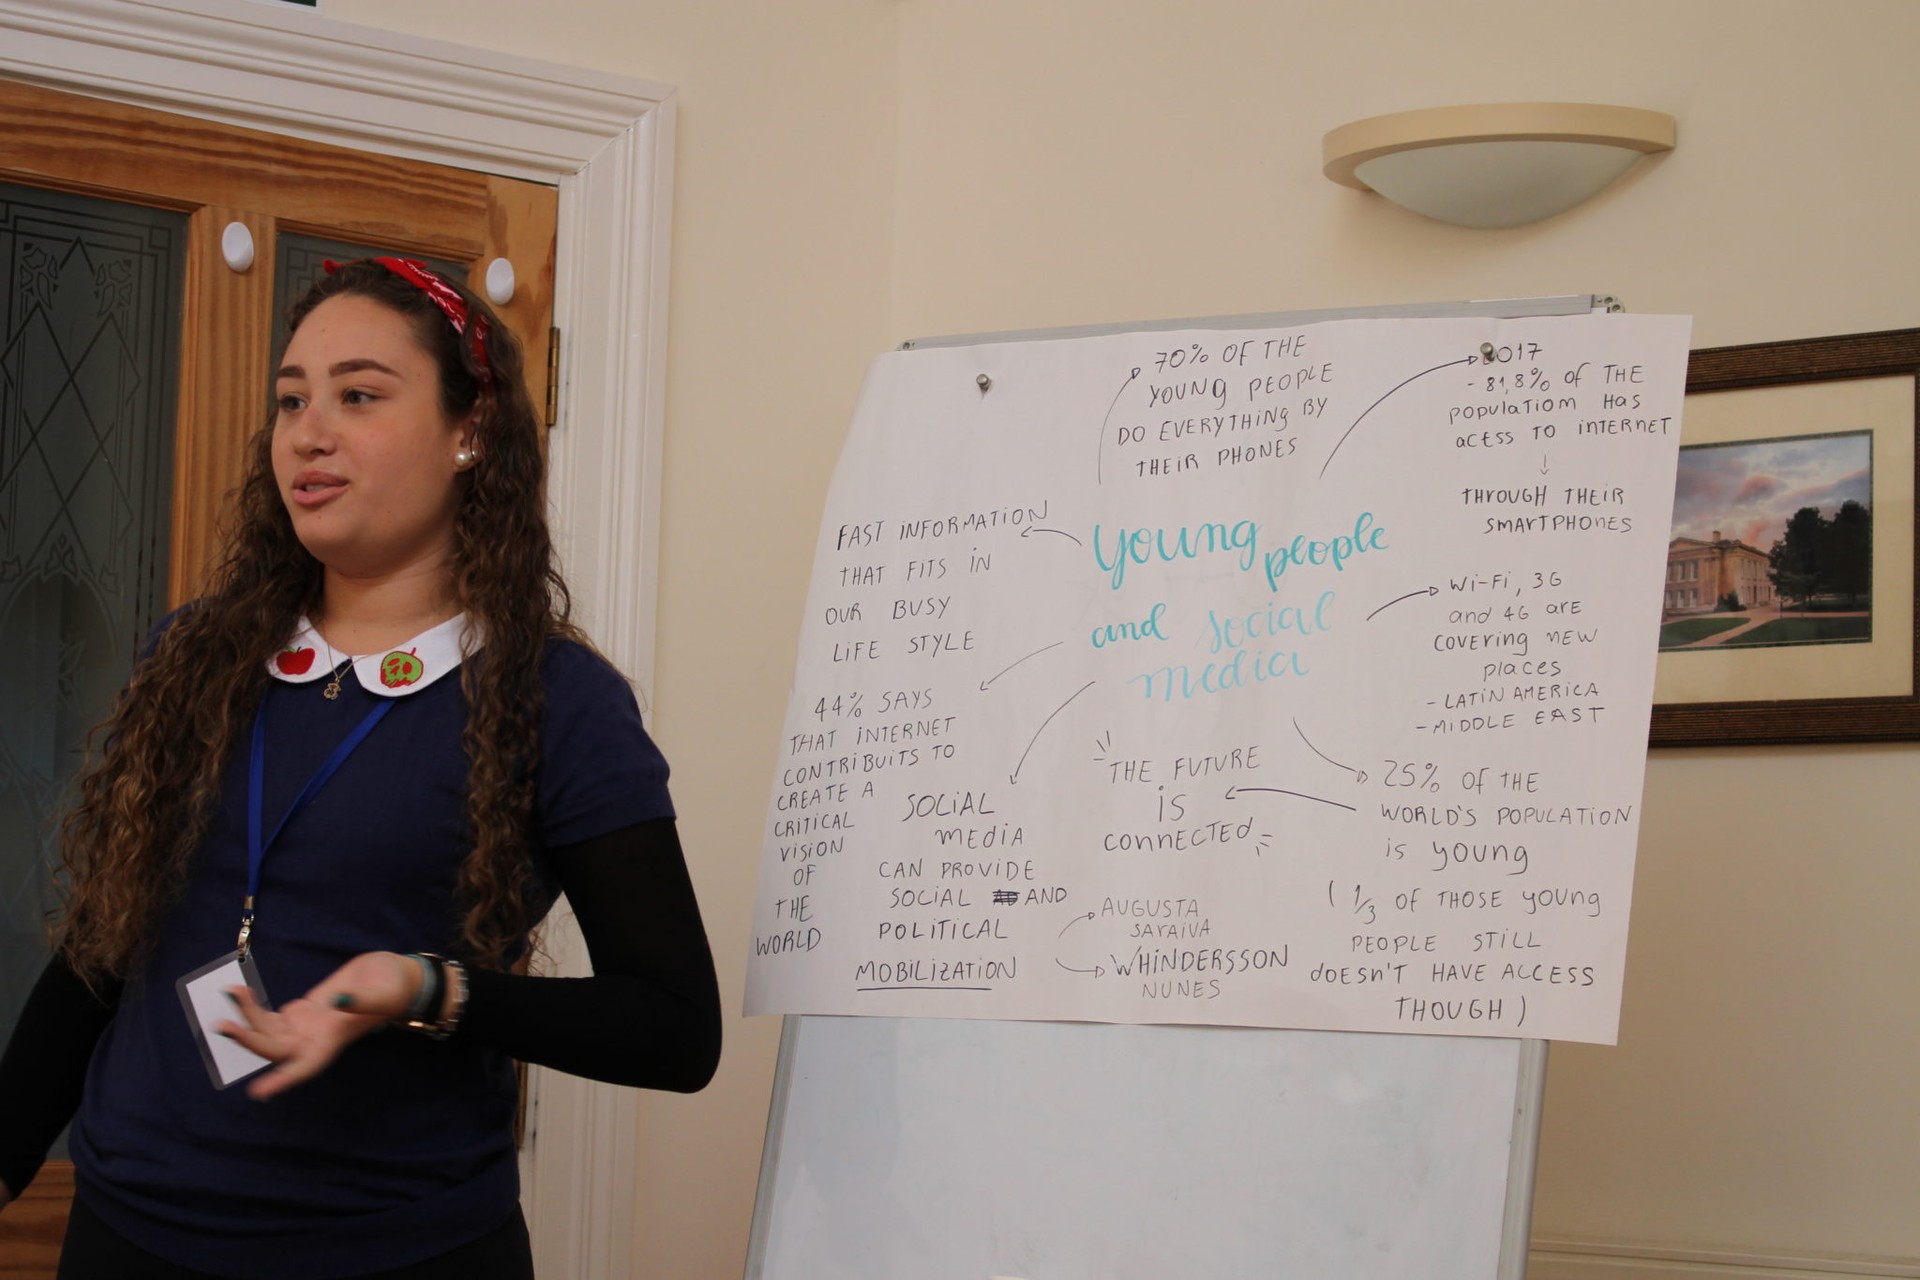 Young people
and social
media
70% OF THE
YOUNG PEOPLE
DO EVERYTHING BY
THEIR PHONES
2017
- 81,8% OF THE
POPULATIOM HAS
ACESS TO INTERNET
↓
THROUGH THEIR
SMARTPHONES
FAST INFORMATION
THAT FITS IN
OUR BUSY
LIFE STYLE
Wi-Fi, 3G
and 4G ARE
COVERING NEW
PLACES
- LATIN AMERICA
- MIDDLE EAST
44% SAYS
THAT INTERNET
CONTRIBUITS TO
CREATE A
CRITICAL
VISION
OF
THE
WORLD
SOCIAL
MEDIA
CAN PROVIDE
SOCIAL AND
POLITICAL
MOBILIZATION
AUGUSTA
SARAIVA
WHINDERSSON
NUNES
THE FUTURE
IS
CONNECTED
25% OF THE
WORLD'S POPULATION
IS YOUNG
( 1/3 OF THOSE YOUNG
PEOPLE STILL
DOESN'T HAVE ACCESS
THOUGH )